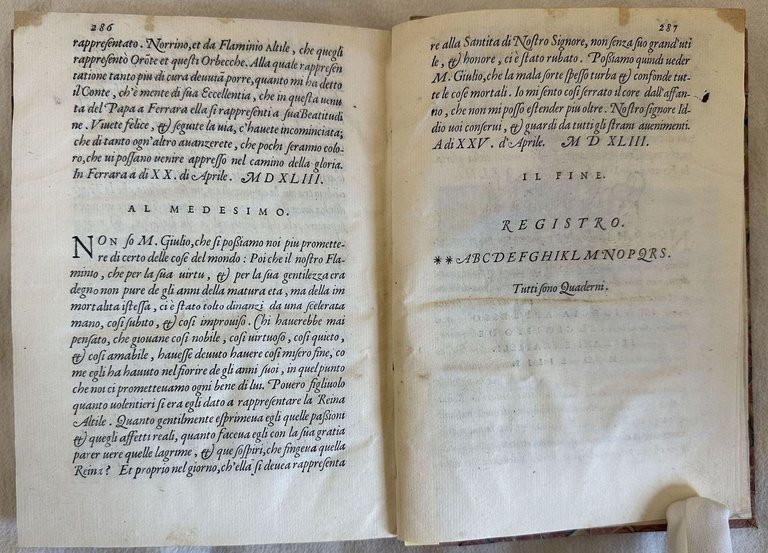 286
rappresentato. Norrino, et da Flaminio Altile, che quegli
rappresentò Oróte et questi Orbecche. Alla quale rappresen
tatione tanto piu di cura deuui à porre, quanto mi ha detto
il Conte, ch'è mente di sua Eccellentia, che in questa uenu
ta del Papa a Ferrara ella si rappresenti a sua Beatitudi
ne. Viuete felice, & seguite la uia, c'hauete incominciata;
che di tanto ogn'altro auanzerete, che pochi seranno colo-
ro, che ui possano uenire appresso nel camino della gloria.
In Ferrara a di XX. di Aprile. M D XLIII.
AL MEDESIMO.
NON so M. Giulio, che si possiamo noi piu promette-
re di certo delle cose del mondo: Poi che il nostro Fla-
minio, che per la sua uirtu, & per la sua gentilezza era
degno non pure de gli anni della matura eta, ma della im
mortalita istessa, ci è stato tolto dinanzi da una scelerata
mano, cosi subito, & cosi improuiso. Chi hauerebbe mai
pensato, che giouane cosi nobile, cosi uirtuoso, cosi quieto,
& cosi amabile, hauesse deuuto hauere cosi misero fine, co
me egli ha hauuto nel fiorire de gli anni suoi, in quel punto
che noi ci prometteuamo ogni bene di lui. Pouero figliuolo
quanto uolentieri si era egli dato a rappresentare la Reina
Altile. Quanto gentilmente esprimeua egli quelle passioni
& quegli affetti reali, quanto faceua egli con la sua gratia
parer uere quelle lagrime, & que sospiri, che fingeua quella
Reina? Et proprio nel giorno, ch'ella si deuea rappresenta
287
re alla Santita di Nostro Signore, non senza suo grand'uti
le, & honore, ci è stato rubato. Possiamo quindi ueder
M. Giulio, che la mala sorte spesso turba & confonde tut-
te le cose mortali. Io mi sento cosi serrato il core dall'affan-
no, che non mi posso estender piu oltre. Nostro signore Id-
dio uoi conserui, & guardi da tutti gli strani auenimenti.
A di XXV. d'Aprile. M D XLIII.
IL FINE.
REGISTRO.
**ABCDEFGHIKLMNOPQRS.
Tutti sono Quaderni.